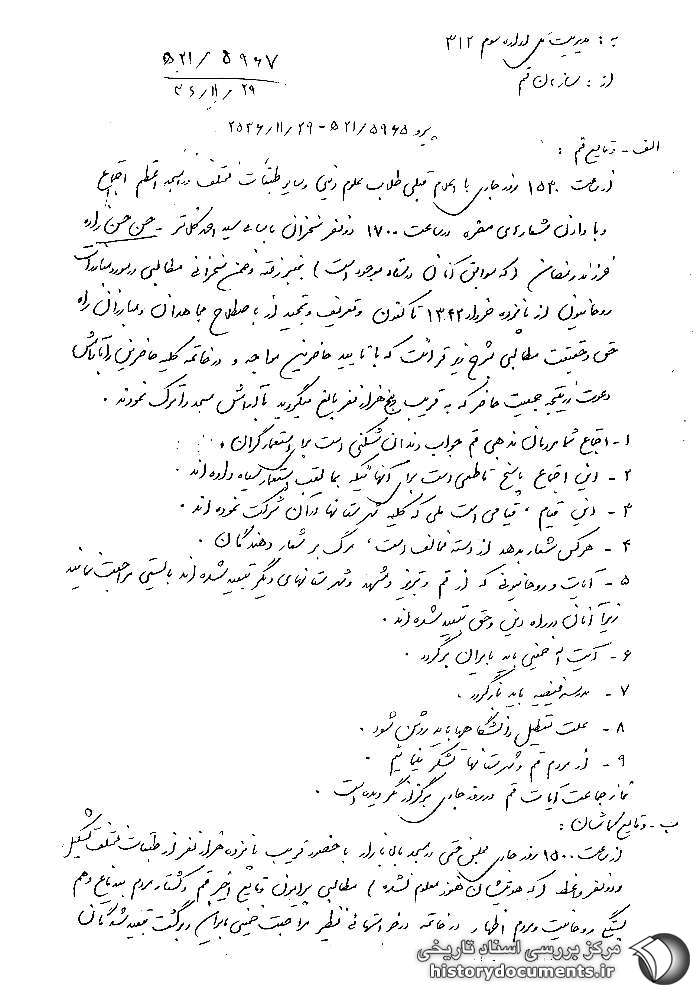 به : مدیریت کل اداره سوم ۳۱۲
از : سازمان قم
۵۲۱/۵۹۶۷
۳۶/۱۱/۲۹
پیرو ۵۲۱/۵۹۶۵ - ۲۵۳۶/۱۱/۲۹
الف - وقایع قم :
از ساعت ۱۵۳۰ روز جاری با اعلام قبلی طلاب علوم دینی و سایر طبقات مختلف در مسجد اعظم اجتماع
و با دادن شعارهای مضره در ساعت ۱۷۰۰ دو نفر سخنران با اسامی سید احمد کلانتر - حسن حسن زاده
فرزند رمضان (که سوابق آنان در ستاد موجود است) بمنبر رفته و ضمن سخنرانی مطالبی در مورد مبارزات
روحانیون از پانزده خرداد ۱۳۴۲ تاکنون و تعریف و تمجید از باصطلاح مجاهدان و مبارزان راه
حق و حقیقت مطالبی بشرح زیر قرائت که با تایید حاضرین مواجه و در خاتمه کلیه حاضرین را بآرامش
دعوت در نتیجه جمعیت حاضر که به قریب پنج هزار نفر بالغ میگردید با آرامش مسجد را ترک نمودند .
۱ - اجتماع شما مردمان مذهبی قم جواب دندان شکنی است برای استعمارگران .
۲ - این اجتماع پاسخ قاطعی است برای آنهائیکه بما لقب استعمار سیاه داده اند .
۳ - این قیام ، قیامی است ملی که کلیه شهرستانها در آن شرکت نموده اند .
۴ - هرکس شعار بدهد از دسته مخالف است ، مرگ بر شعار دهندگان .
۵ - آیات و روحانیونی که از قم و تبریز و مشهد و شهرستانهای دیگر تبعید شده اند بایستی مراجعت نمایند
زیرا آنان در راه دین و حق تبعید شده اند .
۶ - آیت اله خمینی باید بایران برگردد .
۷ - مدرسه فیضیه باید باز گردد .
۸ - علت تعطیل دانشگاهها باید روشن شود .
۹ - از مردم قم و شهرستانها تشکر مینمائیم .
نماز جماعت آیات قم در روز جاری برگزار نگردیده است .
ب - وقایع کاشان :
از ساعت ۱۵۰۰ روز جاری مجلس ختمی در مسجد بالا بازار با حضور قریب پانزده هزار نفر از طبقات مختلف تشکیل
و دو نفر واعظ (که هویتشان هنوز معلوم نشده) مطالبی پیرامون وقایع اخیر قم و کشتار مردم بیدفاع و هم
بستگی روحانیت و مردم اظهار در خاتمه درخواستهائی نظیر مراجعت خمینی بایران و برگشت تبعید شدگان
مرکز بررسی اسناد تاریخی
historydocuments.ir